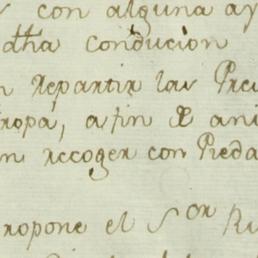 con alguna ay
dha conducion
n repartir las Pre
ropa, a fin de ani
n recoger con Pieda
ropone el Sor Ru